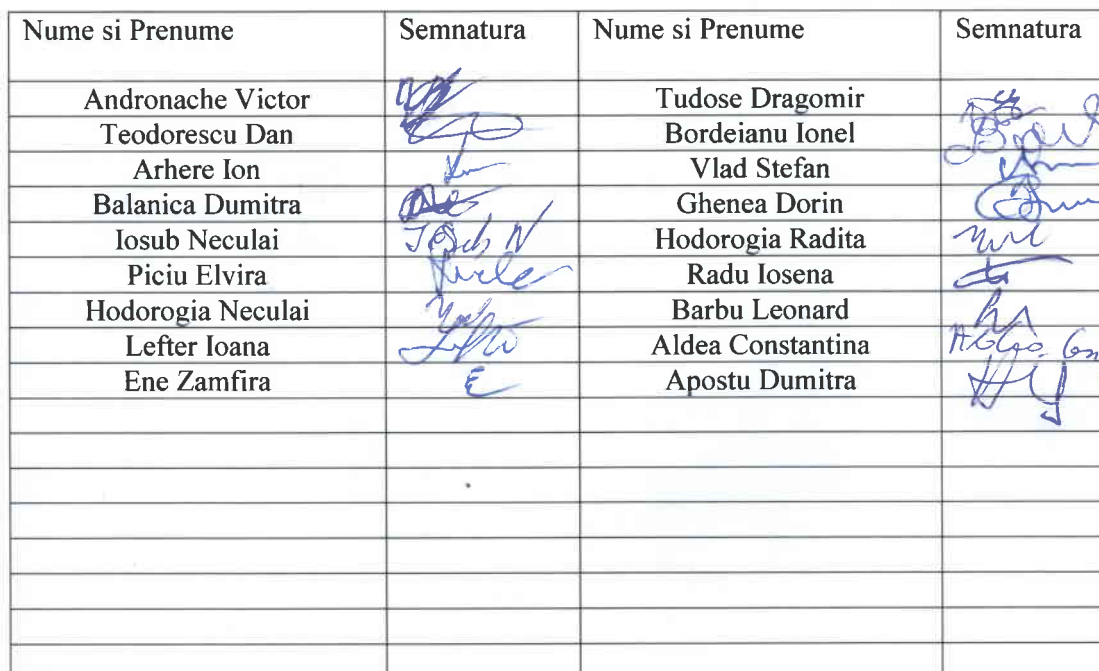 Nume si Prenume Semnatura Nume si Prenume Semnatura
Andronache Victor Tudose Dragomir
Teodorescu Dan Bordeianu Ionel
Arhere Ion Vlad Stefan
Balanica Dumitra Ghenea Dorin
Iosub Neculai Hodorogia Radita
Piciu Elvira Radu Iosena
Hodorogia Neculai Barbu Leonard
Lefter Ioana Aldea Constantina
Ene Zamfira E Apostu Dumitra